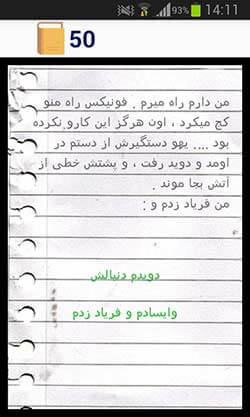 93% 14:11
50
من دارم راه میرم . فونیکس راه منو
کج میکرد ، اون هرگز این کارو نکرده
بود .... یهو دستگیرش از دستم در
اومد و دوید رفت ، و پشتش خطی از
آتش بجا موند .
من فریاد زدم و :
دویدم دنبالش
وایسادم و فریاد زدم